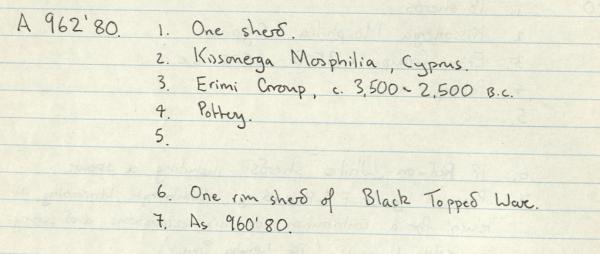 A 962'80. 1. One sherd.
2. Kissonerga Mosphilia, Cyprus.
3. Erimi Group, c. 3,500 - 2,500 B.C.
4. Pottery.
5.
6. One rim sherd of Black Topped Ware.
7. As 960'80.